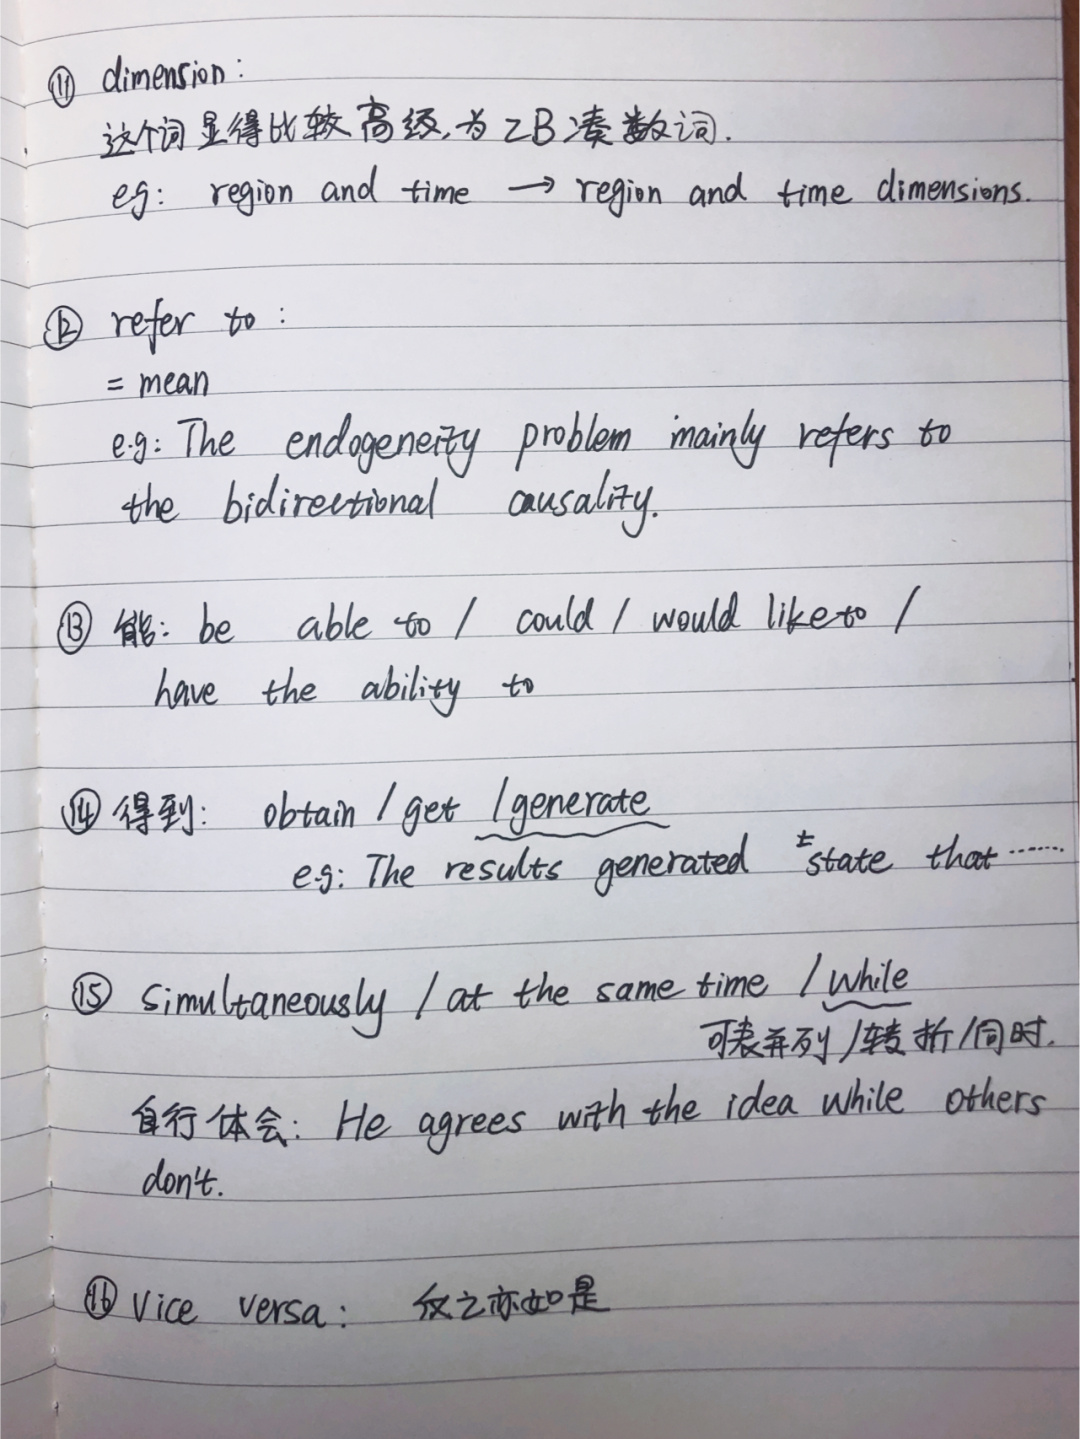 ⑪ dimension:
这个词显得比较高级,为ZB凑数词.
eg: region and time → region and time dimensions.
⑫ refer to:
= mean
e.g: The endogeneity problem mainly refers to
the bidirectional causality.
⑬ 能: be able to / could / would like to /
have the ability to
⑭ 得到: obtain / get / generate
e.g: The results generated state that ......
⑮ Simultaneously / at the same time / while
可表并列/转折/同时.
自行体会: He agrees with the idea while others
don't.
⑯ Vice versa: 反之亦如是